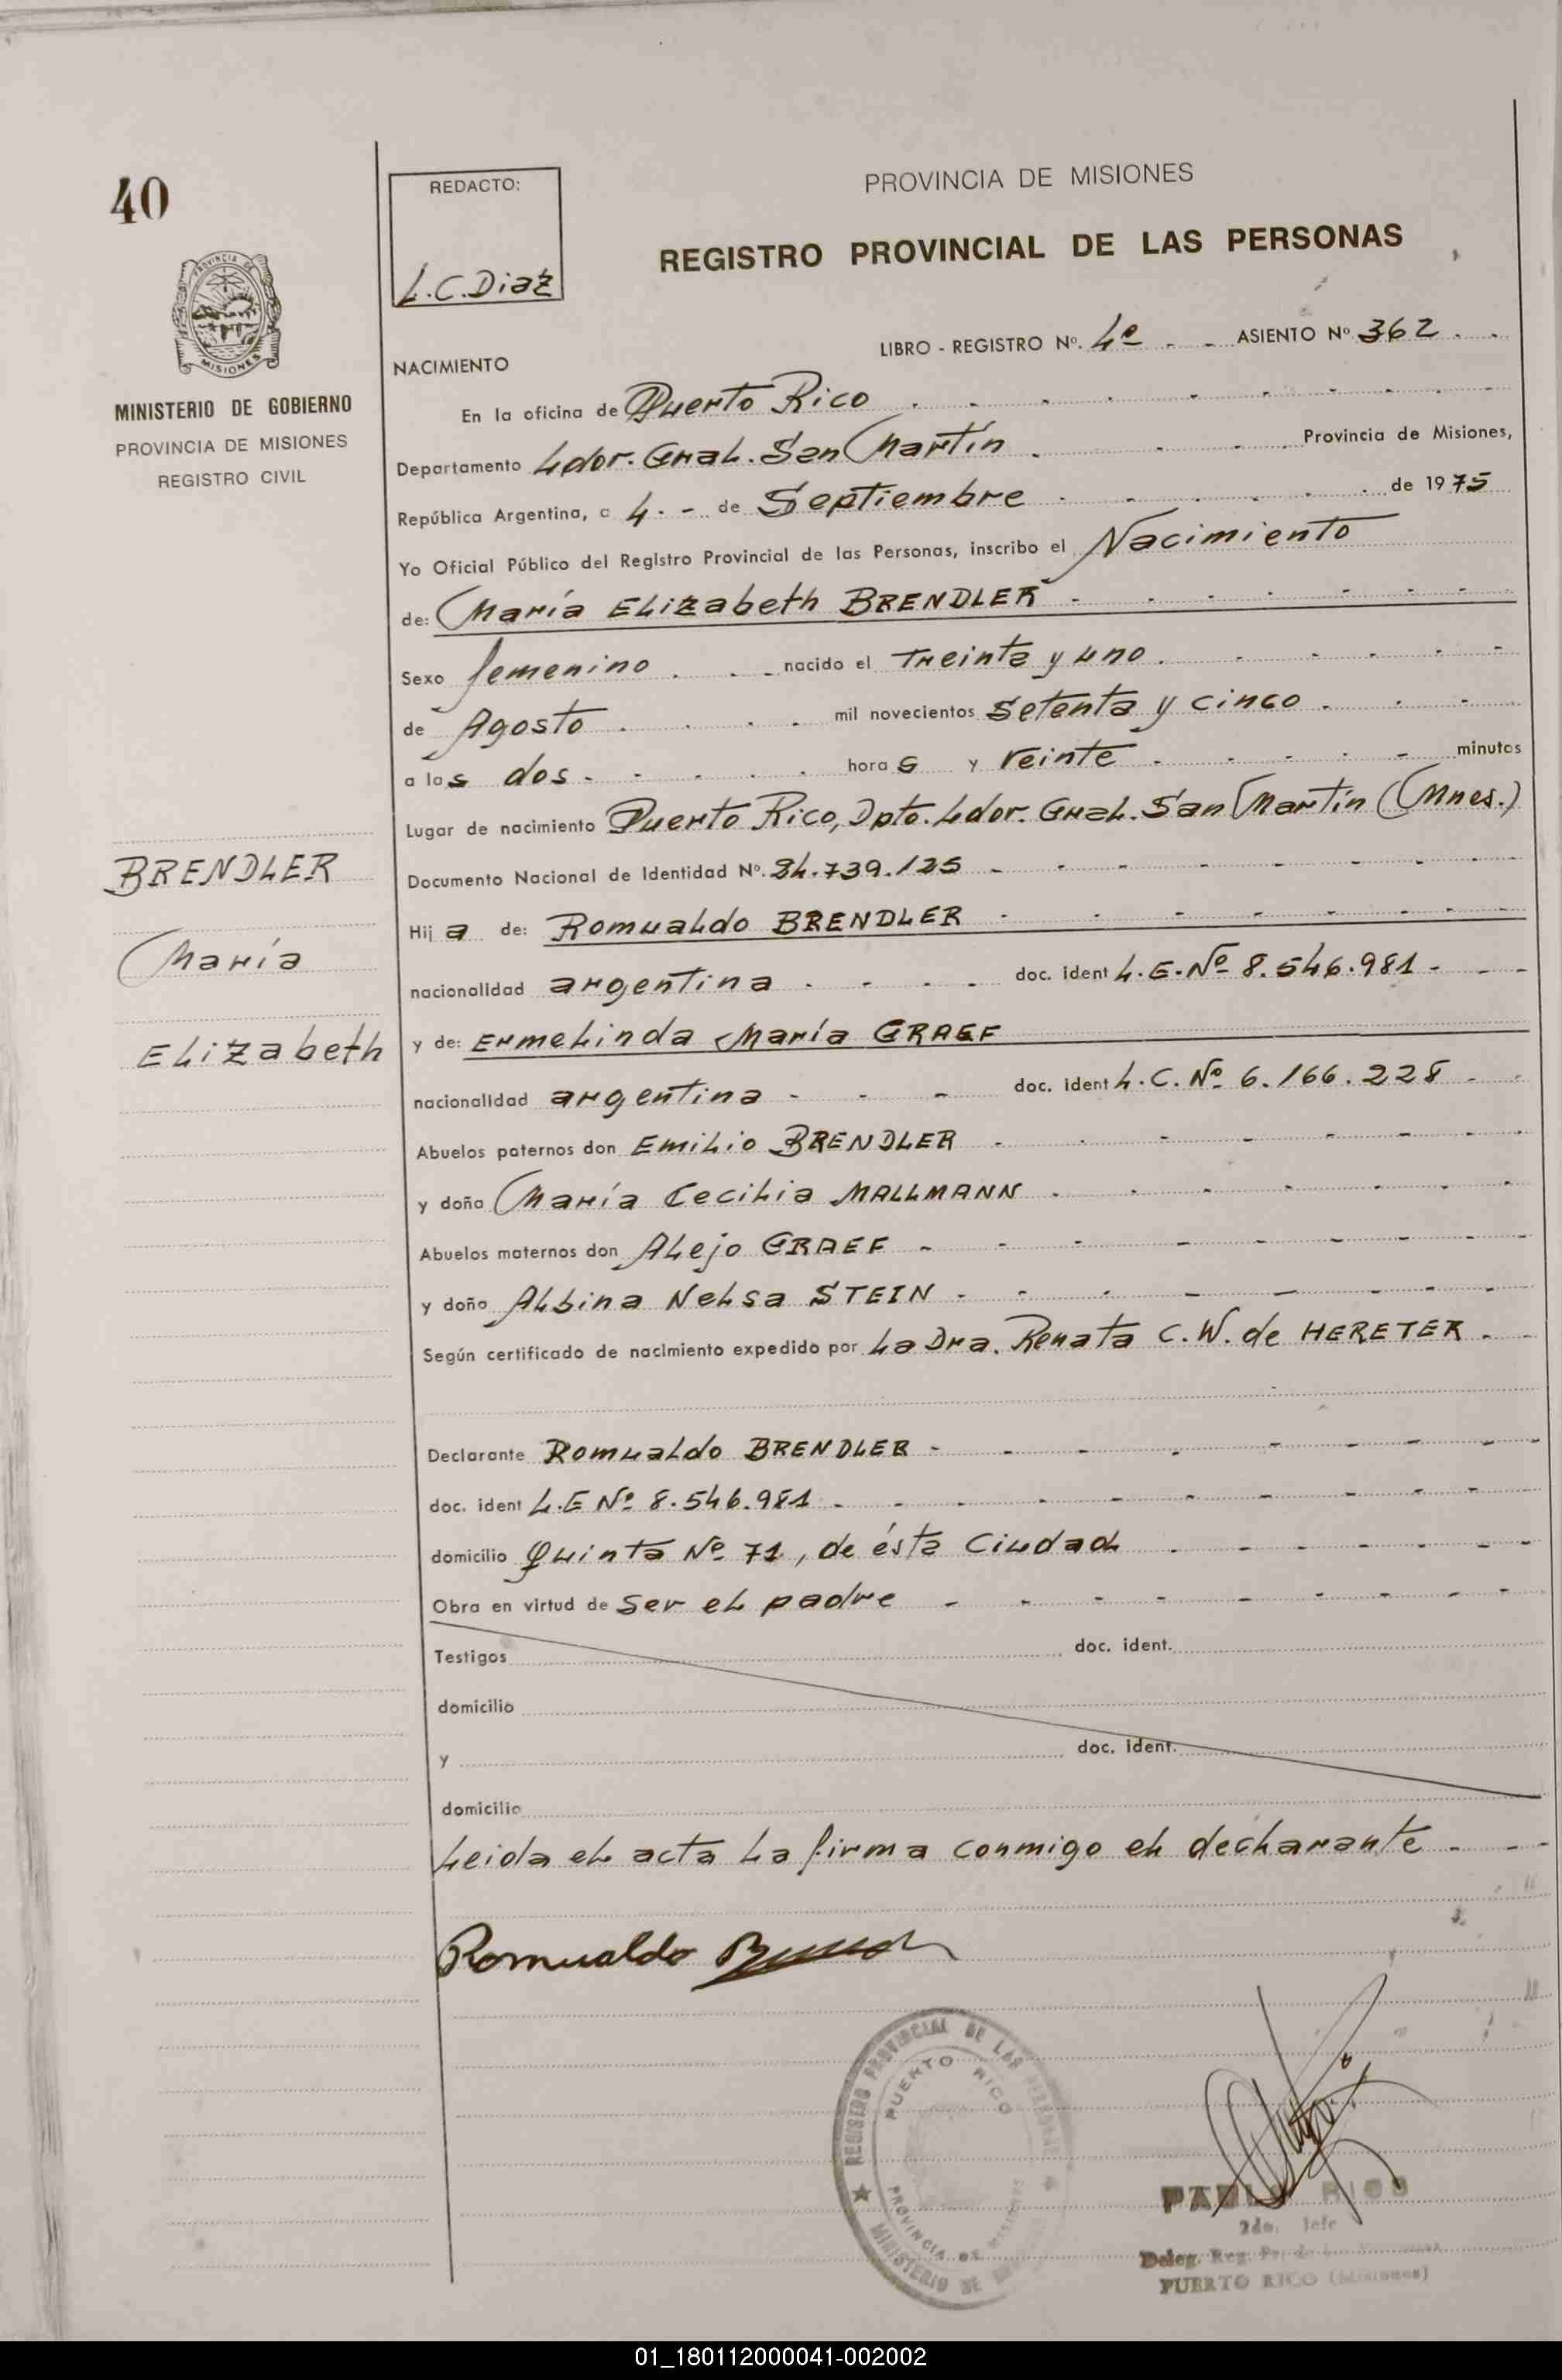 40
PROVINCIA DE
MISIONES
MINISTERIO DE GOBIERNO
PROVINCIA DE MISIONES
REGISTRO CIVIL
BRENDLER
María
Elizabeth
REDACTO:
L.C.Diaz
PROVINCIA DE MISIONES
REGISTRO PROVINCIAL DE LAS PERSONAS
LIBRO - REGISTRO Nº. 4º - - ASIENTO Nº 362 - -
NACIMIENTO
En la oficina de Puerto Rico
Departamento Ldor. Gral. San Martín Provincia de Misiones,
República Argentina, a 4. - de Septiembre de 1975
Yo Oficial Público del Registro Provincial de las Personas, inscribo el Nacimiento
de: María Elizabeth BRENDLER
Sexo femenino nacido el Treinta y uno
de Agosto mil novecientos Setenta y cinco
a las dos hora s y veinte minutos
Lugar de nacimiento Puerto Rico, Dpto. Ldor. Gral. San Martín (Mnes.)
Documento Nacional de Identidad Nº. 24.739.125
Hija de: Romualdo BRENDLER
nacionalidad argentina doc. ident L.E.Nº 8.546.981
y de: Ermelinda María GRAEF
nacionalidad argentina doc. ident L.C.Nº 6.166.228
Abuelos paternos don Emilio BRENDLER
y doña María Cecilia MALLMANN
Abuelos maternos don Alejo GRAEF
y doña Albina Nelsa STEIN
Según certificado de nacimiento expedido por La Dra. Renata C.W. de HERETER
Declarante Romualdo BRENDLER
doc. ident L.E Nº 8.546.981
domicilio Quinta Nº 71, de ésta Ciudad
Obra en virtud de ser el padre
Testigos doc. ident.
domicilio
y doc. ident.
domicilio
Leida el acta la firma conmigo el declarante
Romualdo
REGISTRO PROVINCIAL DE LAS PERSONAS
PUERTO RICO
PROVINCIA DE MISIONES
MINISTERIO DE
RICO
2do. Jefe
Deleg. Reg.
PUERTO RICO (Misiones)
01_180112000041-002002